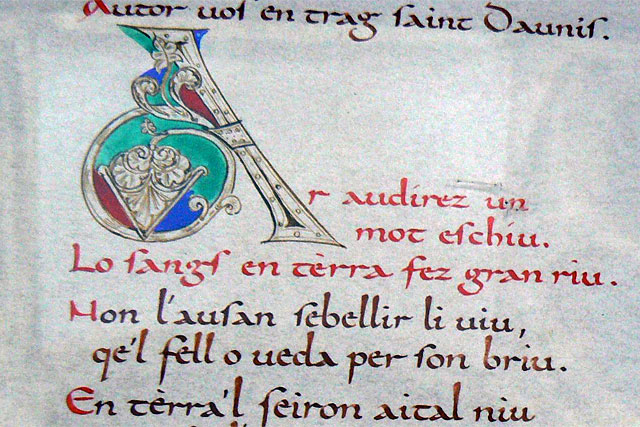 Autor vos en trag saint Daunis.
Ar audirez un
mot eschiu.
Lo sangs en tèrra fez gran riu.
Non l'ausan sebellir li uiu,
qe'l fell o ueda per son briu.
En tèrra'l seiron aital niu